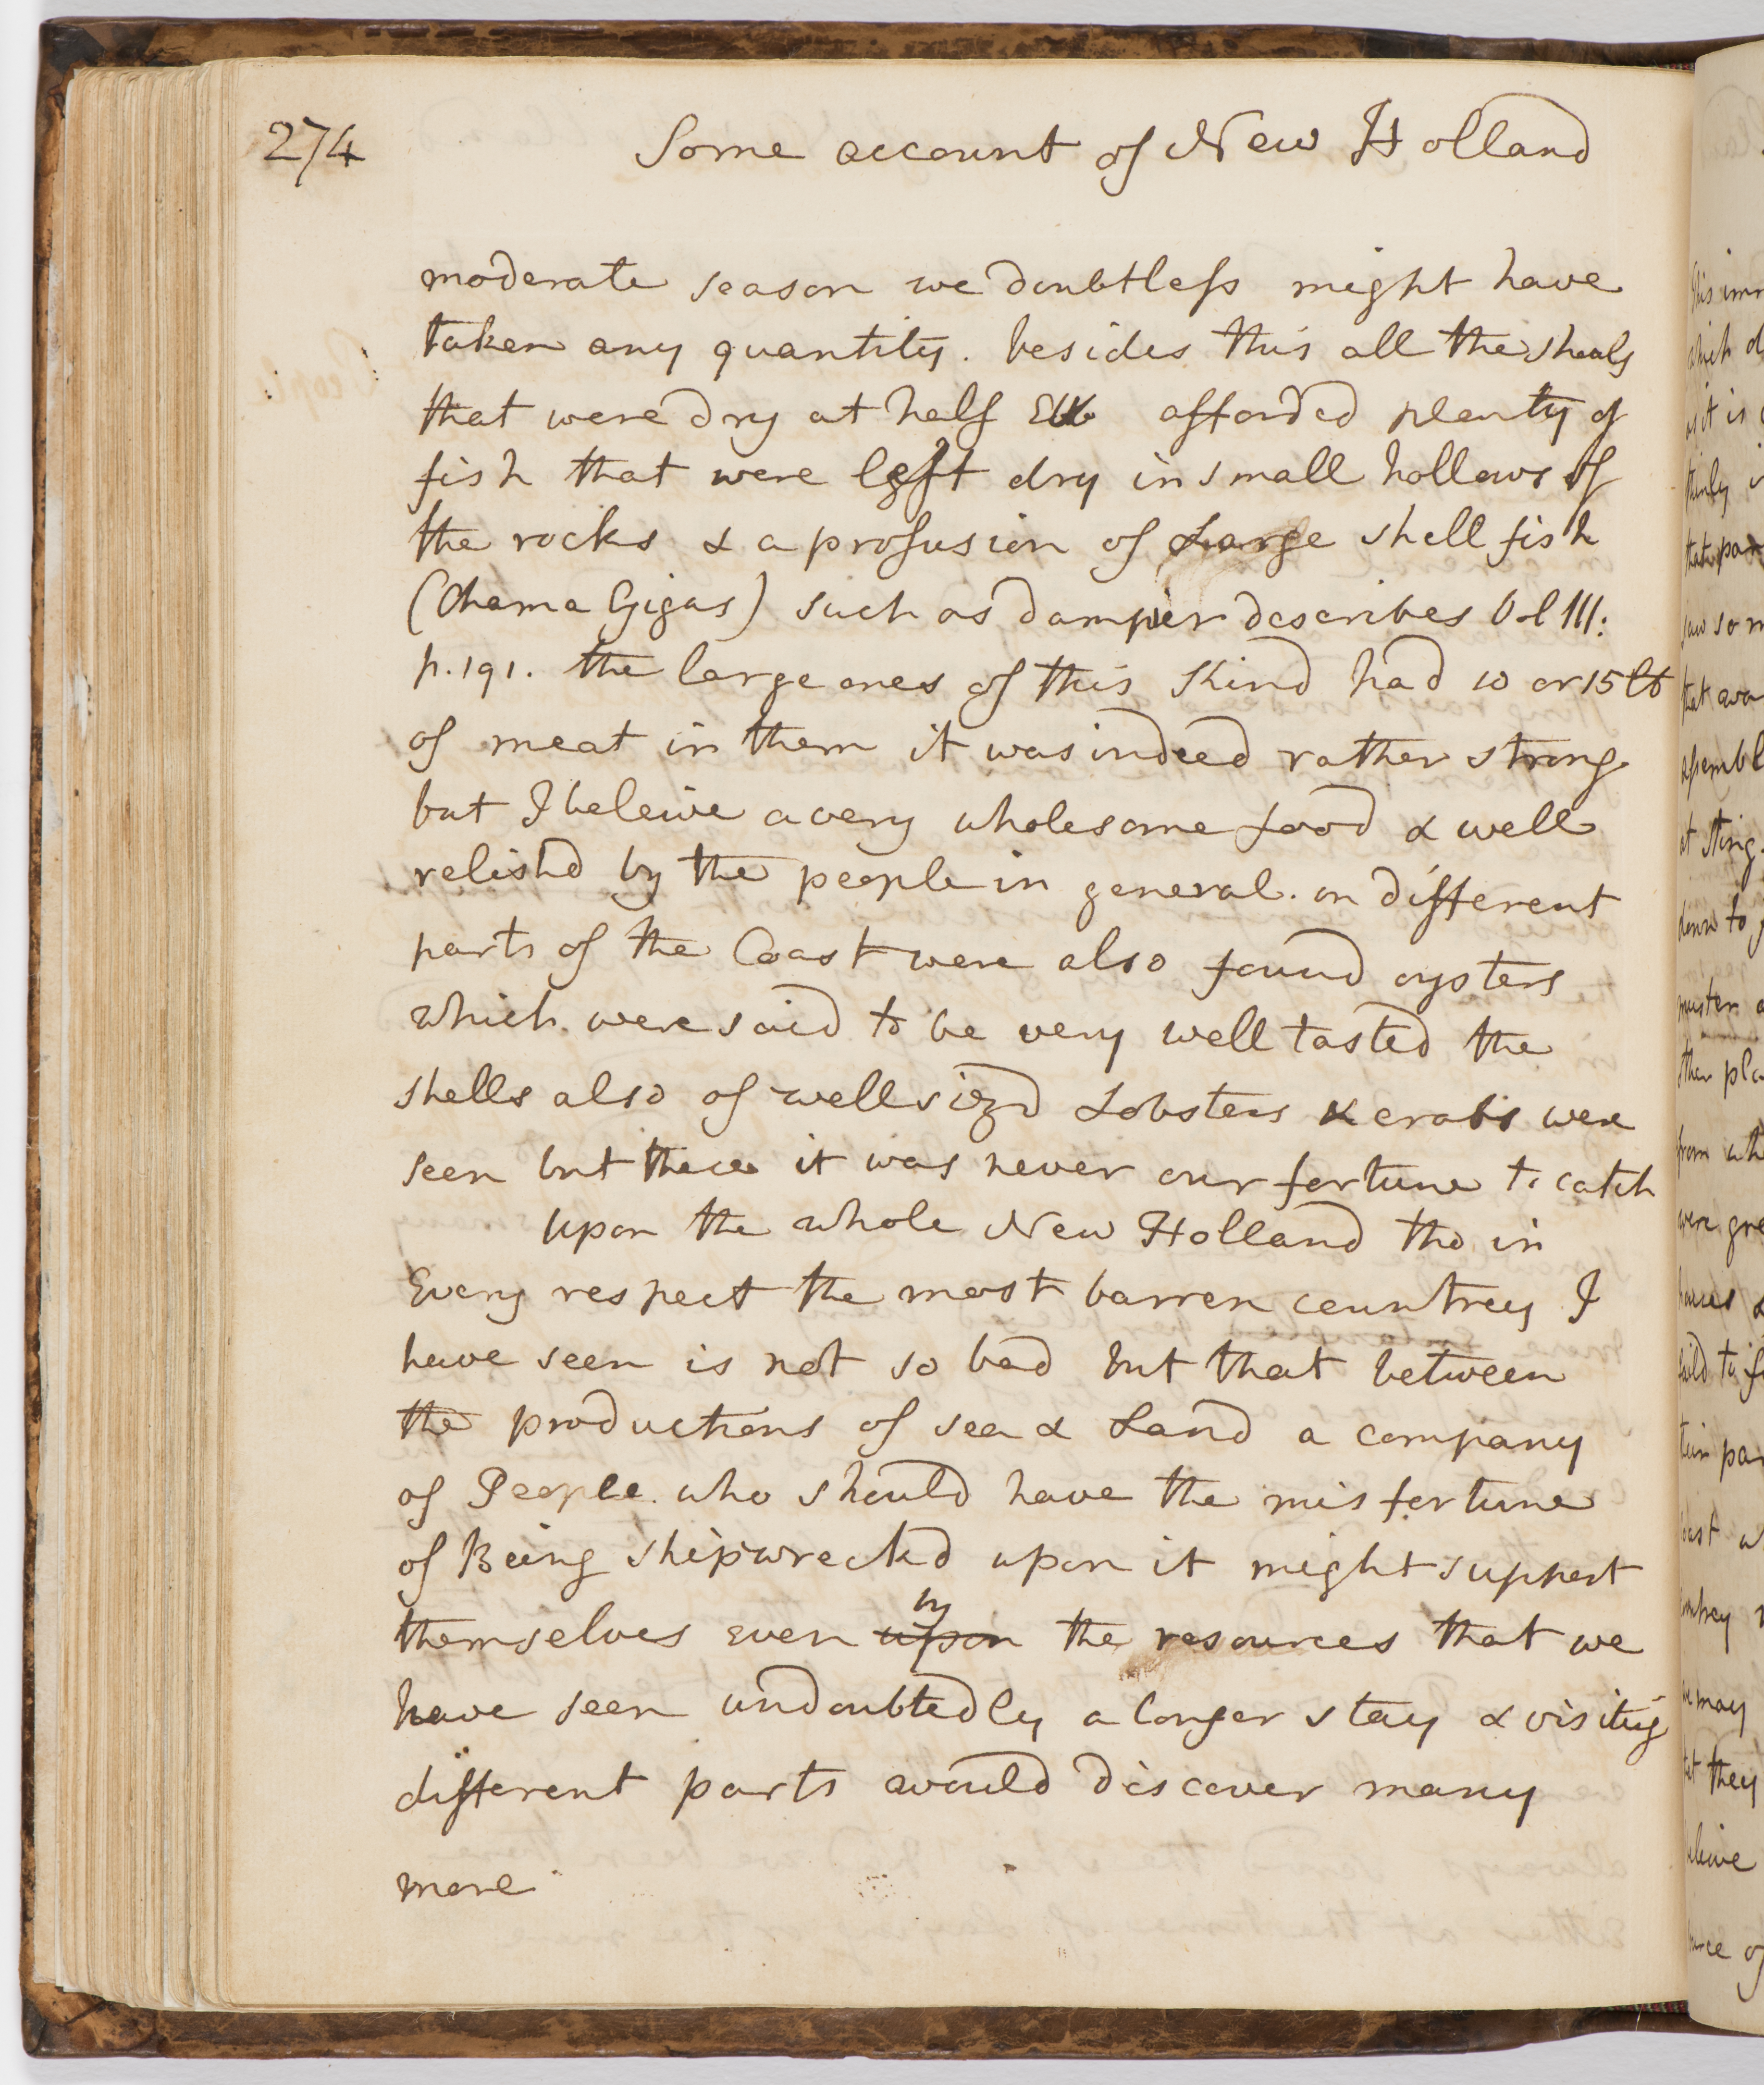 274
Some account of New Holland
moderate season we doubtless might have
taken any quantity. besides this all the shoals
that were dry at half Ebb afforded plenty of
fish that were left dry in small hollows of
the rocks & a profusion of Large shell fish
(Chama Gigas) such as dampier describes Vol III:
p.191. the large ones of this Kind had 10 or 15 lb
of meat in them it was indeed rather strong
but I beleive a very wholesome food & well
relishd by the people in general. on different
parts of the Coast were also found oysters
which were said to be very well tasted the
shells also of well sizd Lobsters & crabs were
seen but these it was never our fortune to catch
Upon the whole New Holland tho in
Every respect the most barren countrey I
have seen is not so bad but that between
the productions of sea & Land a company
of People who should have the misfortune
of Being shipwreckd upon it might support
by
themselves even upon the resources that we
have seen undoubtedly a longer stay & visiting
different parts would discover many
more
which
it is
that
saw som
that
at sting
down to
muster
other pla
from wh
were gre
houses &
faild to
tain par
Coast
countrey
we may
they
beleive
of